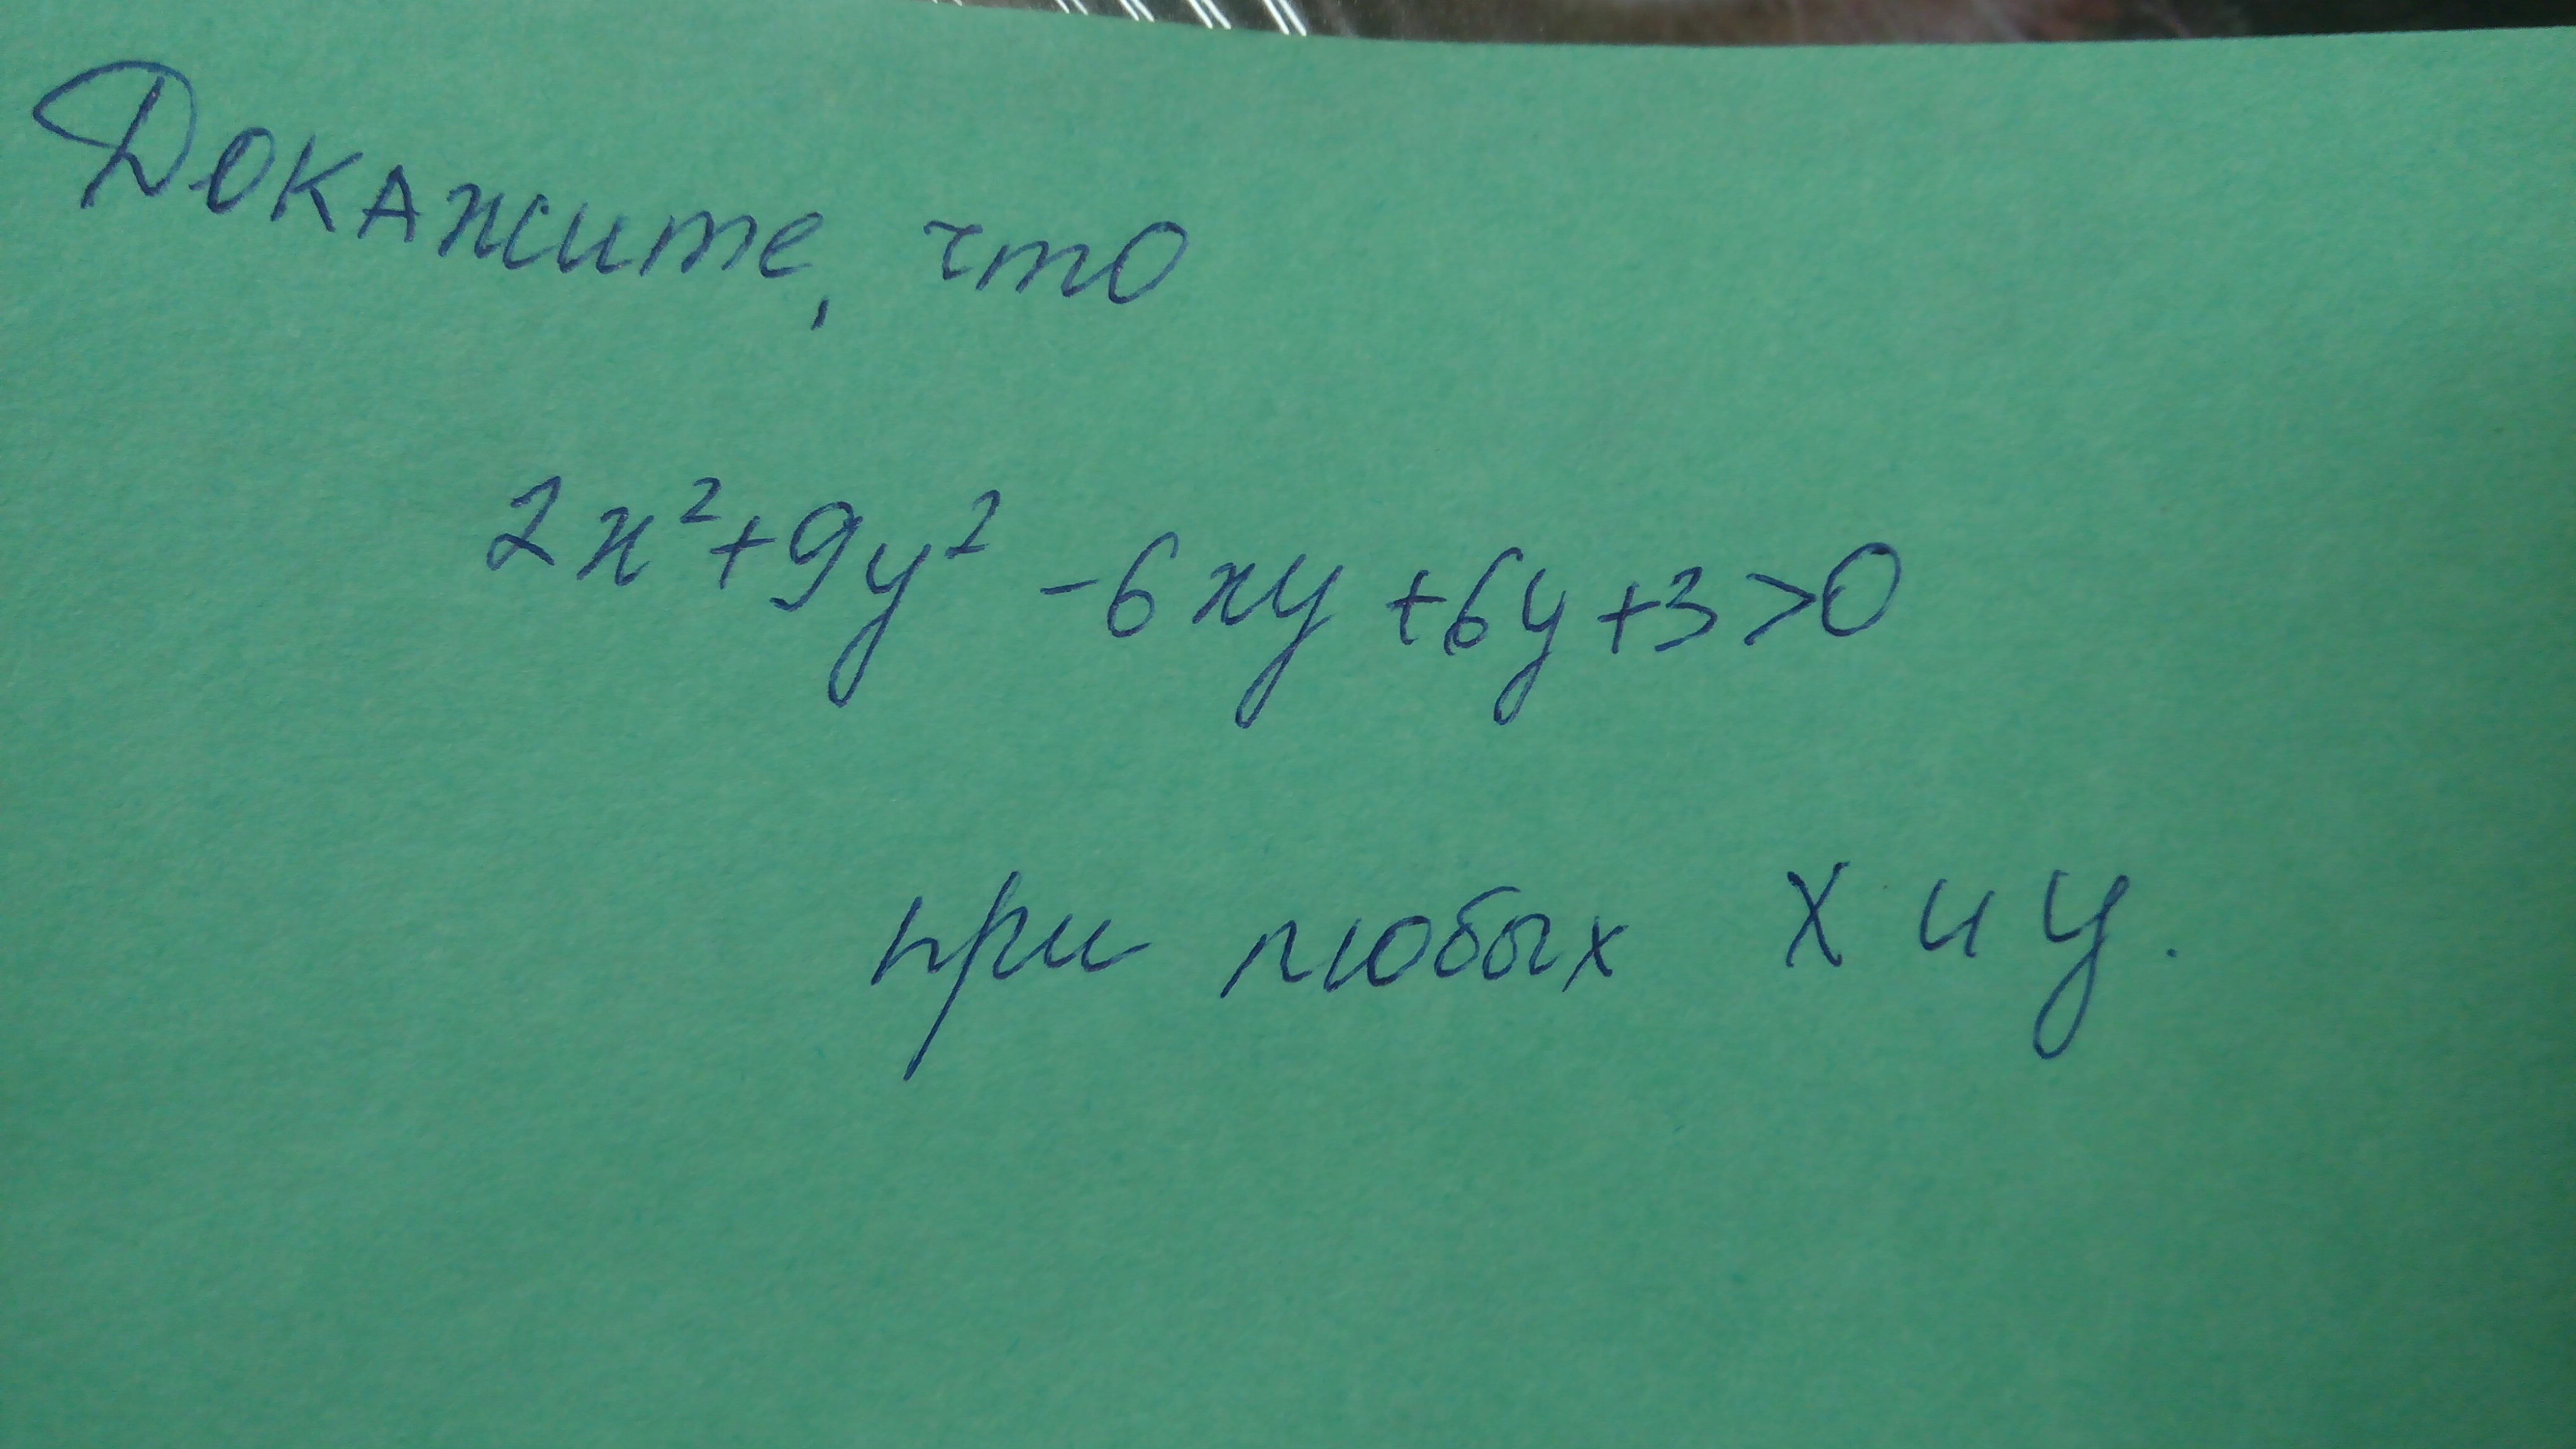 Докажите, что
2x²+9y²-6xy+6y+3>0
при любых x и y.